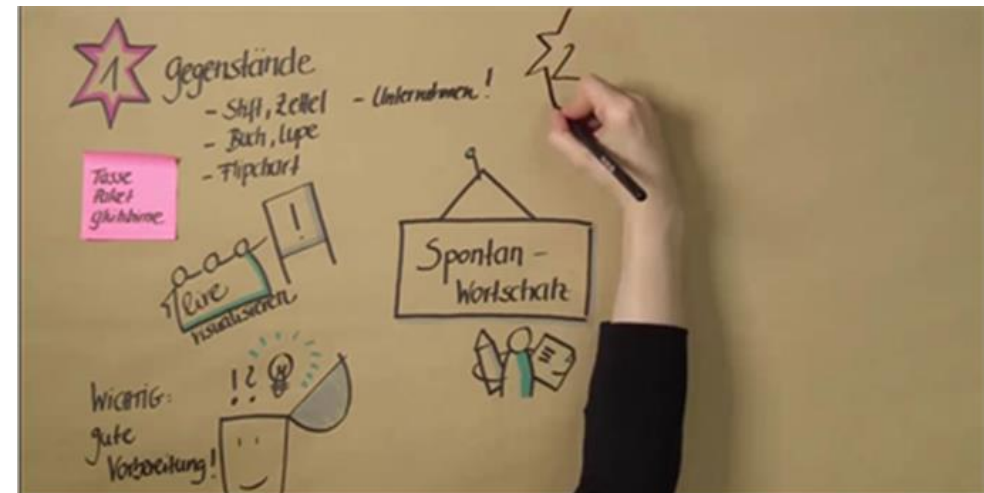 1
Gegenstände
- Stift, Zettel - Unternehmen!
- Buch, Lupe
- Flipchart
2
Tasse
Paket
Glühbirne
!
live
visualisieren
Spontan -
Wortschatz
!?
WICHTIG:
gute
Vorbereitung!